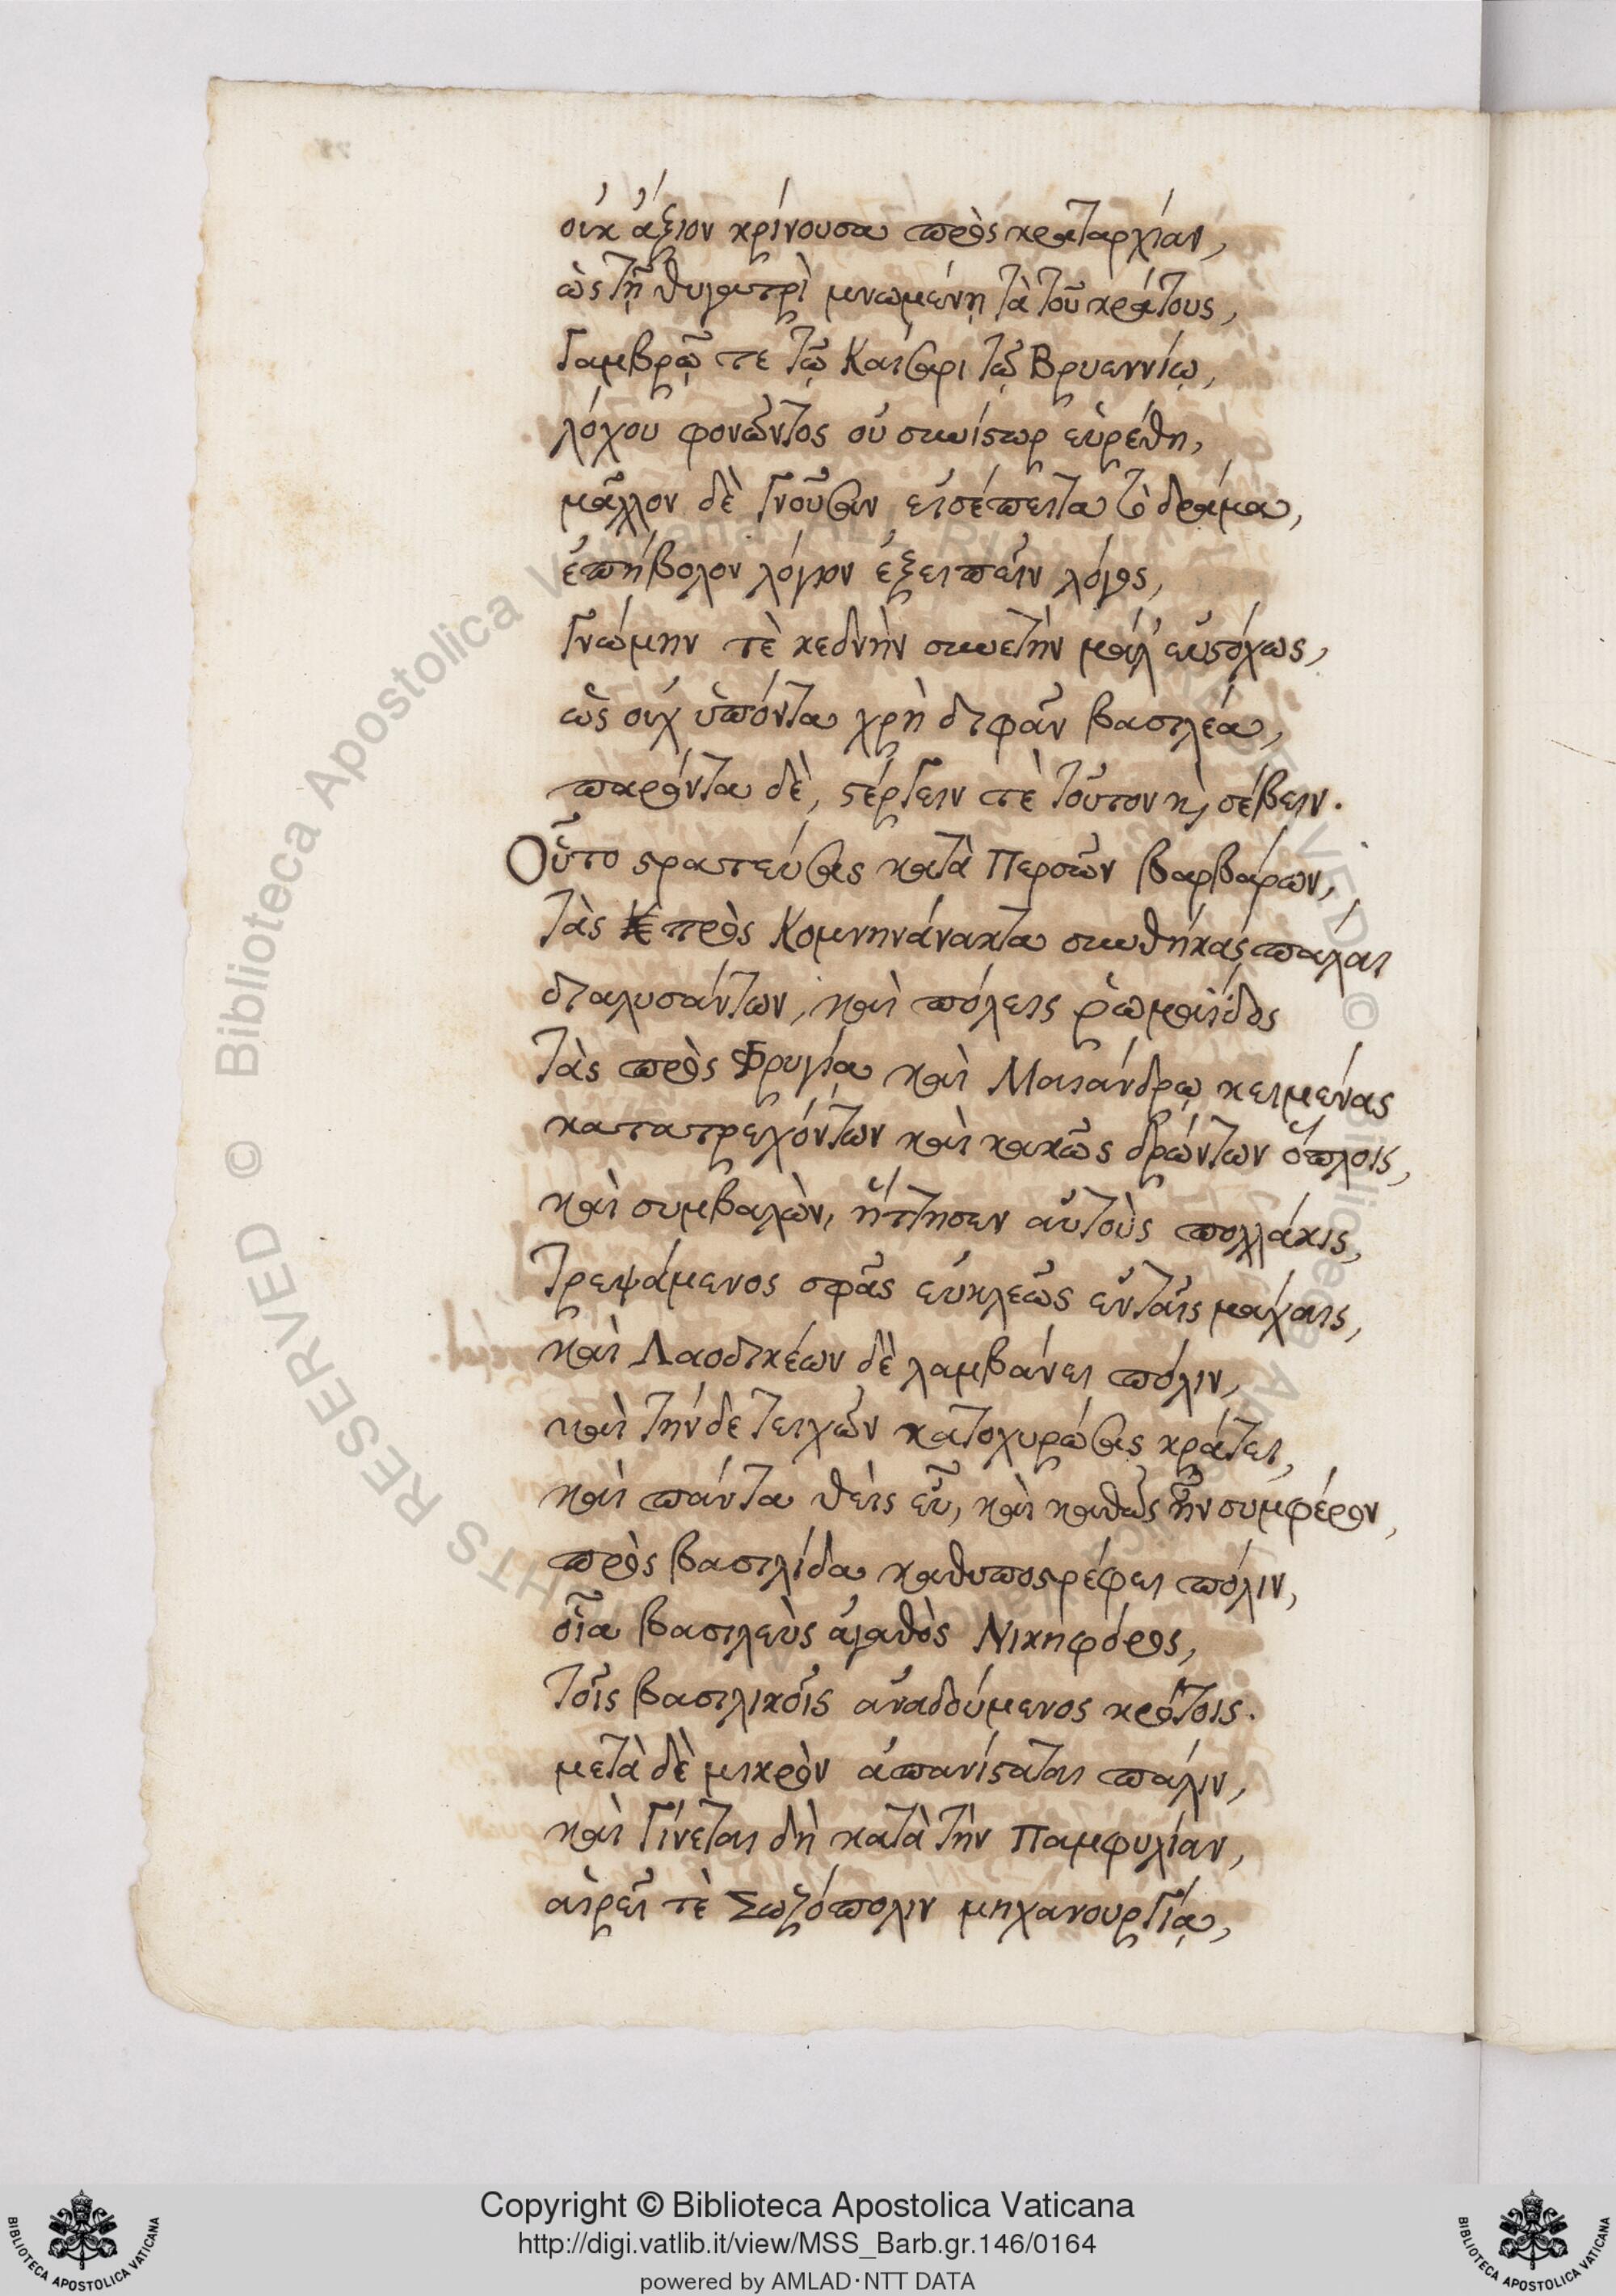 οὐκ ἄξιον κρίνουσα πρὸς κραταρχίαν,
ὡς τῇ θυγατρὶ μνωμένῃ τὰ τοῦ κράτους,
γαμβρῷ τε τῷ Καίσαρι τῷ Βρυεννίῳ,
λόχου φονῶντος οὐ συνίστωρ εὑρέθη,
μᾶλλον δὲ γνοῦσαν εἰσέπειτα τὸ δράμα,
ἐπήβολον λόγιον ἐξειπεῖν λόγος,
γνώμην τὲ κεδνὴν συνετὴν μάλ' εὐστόχως,
ὡς οὐχ ὑπόντα χρὴ διφᾶν βασιλέα,
παρόντα δὲ, στέργειν τὲ τοῦτον κὶ σέβειν.
Οὗτο στρατεύσας κατὰ Περσῶν βαρβάρων,
τὰς πρὸς Κομνηνάνακτα συνθήκας πάλαι
διαλυσάντων, καὶ πόλεις ῥωμαΐδος
τὰς πρὸς Φρυγία καὶ Μαιάνδρῳ κειμένας
κατατρεχόντων καὶ κακῶς δρώντων ὅπλοις,
καὶ συμβαλὼν, ἥττησεν αὐτοὺς πολλάκις,
τρεψάμενος σφᾶς εὐκλεῶς ἐν ταῖς μάχαις,
καὶ Λαοδικέων δὲ λαμβάνει πόλιν,
καὶ τήνδε τειχῶν κατοχυρώσας κράτει,
καὶ πάντα θεὶς εὖ, καὶ καθὼς ἦν συμφέρον,
πρὸς βασιλίδα καθυποστρέφει πόλιν,
οἷα βασιλεὺς ἀγαθὸς Νικηφόρος,
τοῖς βασιλικοῖς ἀναδούμενος κρότοις.
μετὰ δὲ μικρὸν ἀπανίσταται πάλιν,
καὶ γίνεται δὴ κατὰ τὴν Παμφυλίαν,
αἱρεῖ τὲ Σωζόπολιν μηχανουργίᾳ,
Copyright © Biblioteca Apostolica Vaticana
http://digi.vatlib.it/view/MSS_Barb.gr.146/0164
powered by AMLAD·NTT DATA